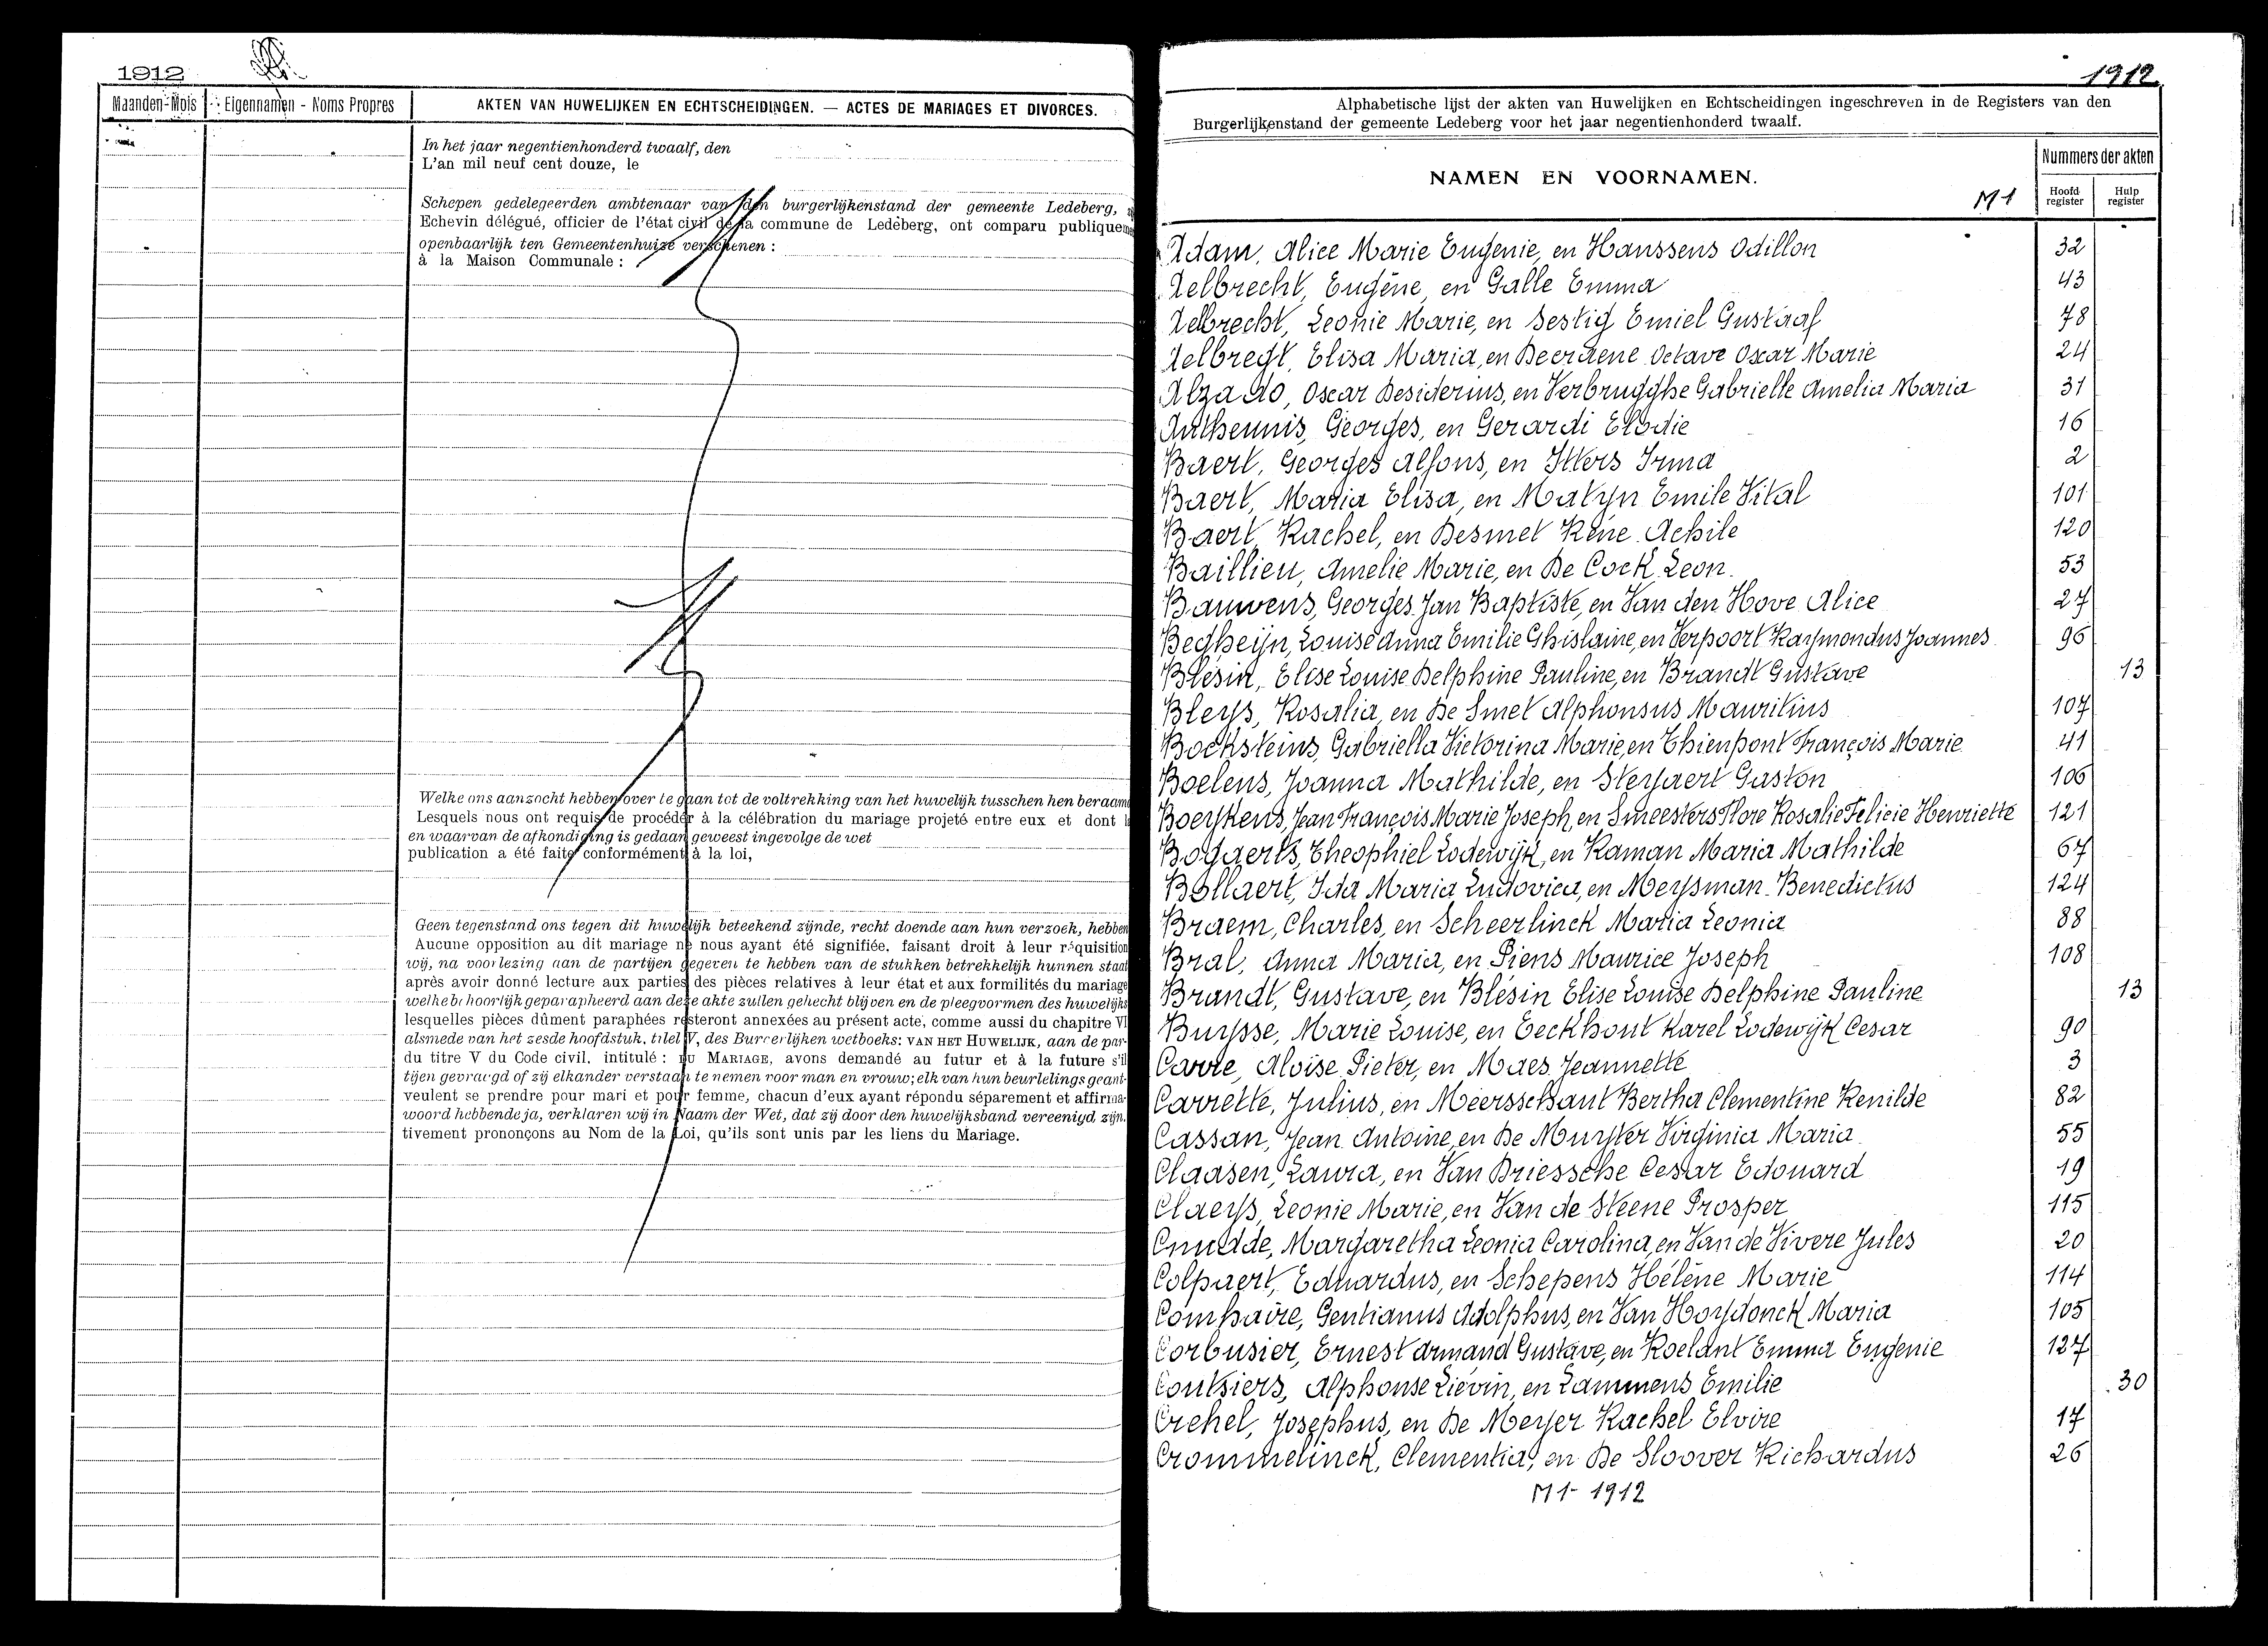 1912
Maanden-Mois
Eigennamen - Noms Propres
AKTEN VAN HUWELIJKEN EN ECHTSCHEIDINGEN. — ACTES DE MARIAGES ET DIVORCES.
In het jaar negentienhonderd twaalf, den
L'an mil neuf cent douze, le
Schepen gedelegeerden ambtenaar van den burgerlijkenstand der gemeente Ledeberg,
Echevin délégué, officier de l'état civil de la commune de Ledeberg, ont comparu publiquem
openbaarlijk ten Gemeentenhuize verschenen :
à la Maison Communale :
Welke ons aanzocht hebben over te gaan tot de voltrekking van het huwelijk tusschen hen beraam
Lesquels nous ont requis de procéder à la célébration du mariage projeté entre eux et dont l
en waarvan de afkondiging is gedaan geweest ingevolge de wet
publication a été faite conformément à la loi,
Geen tegenstand ons tegen dit huwelijk beteekend zijnde, recht doende aan hun verzoek, hebben
Aucune opposition au dit mariage ne nous ayant été signifiée, faisant droit à leur réquisition
wij, na voorlezing aan de partijen gegeven te hebben van de stukken betrekkelijk hunnen staat
après avoir donné lecture aux parties des pièces relatives à leur état et aux formilités du mariage
welke behoorlijk geparapheerd aan deze akte zullen gehecht blijven en de pleegvormen des huwelijks
lesquelles pièces dûment paraphées resteront annexées au présent acte, comme aussi du chapitre VI
alsmede van het zesde hoofdstuk, titel V, des Burgerlijken wetboeks: VAN HET HUWELIJK, aan de par-
du titre V du Code civil, intitulé : DU MARIAGE, avons demandé au futur et à la future s'il
tijen gevraagd of zij elkander verstaan te nemen voor man en vrouw; elk van hun beurtelings geant-
veulent se prendre pour mari et pour femme, chacun d'eux ayant répondu séparement et affirma-
woord hebbende ja, verklaren wij in Naam der Wet, dat zij door den huwelijksband vereenigd zijn.
tivement prononçons au Nom de la Loi, qu'ils sont unis par les liens du Mariage.
1912
Alphabetische lijst der akten van Huwelijken en Echtscheidingen ingeschreven in de Registers van den
Burgerlijkenstand der gemeente Ledeberg voor het jaar negentienhonderd twaalf.
NAMEN EN VOORNAMEN.
M1
Nummers der akten
Hoofd register
Hulp register
Adam, Alice Marie Eugenie, en Hanssens Odillon 32
Aelbrecht, Eugène, en Galle Emma 43
Aelbrecht, Leonie Marie, en Sestig Emiel Gustaaf 78
Aelbregt, Elisa Maria, en Deerdene Octave Oscar Marie 24
Alzado, Oscar Desiderius, en Verbrugghe Gabrielle Amelia Maria 31
Antheunis, Georges, en Gerardi Elodie 16
Baert, Georges Alfons, en Itters Irma 2
Baert, Maria Elisa, en Matyn Emile Vital 101
Baert, Rachel, en Desmet Réne Achile 120
Baillieu, Amelie Marie, en De Cock Leon. 53
Bauwens, Georges Jan Baptiste, en Van den Hove Alice 27
Begheijn, Louise Anna Emilie Ghislaine, en Verpoort Raymondus Joannes 96
Blésin, Elise Louise Delphine Pauline, en Brandt Gustave 13
Bleys, Rosalia, en De Smet Alphonsus Mauritius 107
Bocksteins, Gabriella Victorina Marie, en Thienpont François Marie 41
Boelens, Joanna Mathilde, en Steyaert Gaston 106
Boeykens, Jean François Marie Joseph, en Smeesters Flore Rosalie Felicie Henriette 121
Bogaerts, Theophiel Lodewijk, en Raman Maria Mathilde 67
Bollaert, Ida Maria Ludovica, en Meysman Benedictus 124
Braem, Charles, en Scheerlinck Maria Leonia 88
Bral, Anna Maria, en Piens Maurice Joseph 108
Brandt, Gustave, en Blésin Elise Louise Delphine Pauline 13
Buysse, Marie Louise, en Eeckhout Karel Lodewijk Cesar 90
Carre, Aloïse Pieter, en Maes Jeannette 3
Carrette, Julius, en Meersschaut Bertha Clementine Renilde 82
Cassan, Jean Antoine, en De Muyter Virginia Maria 55
Claasen, Laura, en Van Driessche Cesar Edouard 19
Claeys, Leonie Marie, en Van de Steene Prosper 115
Cnudde, Margaretha Leonia Carolina, en Van de Vivere Jules 20
Colpaert, Eduardus, en Schepens Hélène Marie 114
Comhaire, Gentianus Adolphus, en Van Hoydonck Maria 105
Corbusier, Ernest Armand Gustave, en Roelant Emma Eugenie 127
Coutsiers, Alphonse Liévin, en Lammens Emilie 30
Crehel, Josephus, en De Meyer Rachel Elvire 17
Crommelinck, Clementia, en De Sloover Richardus 26
M1- 1912